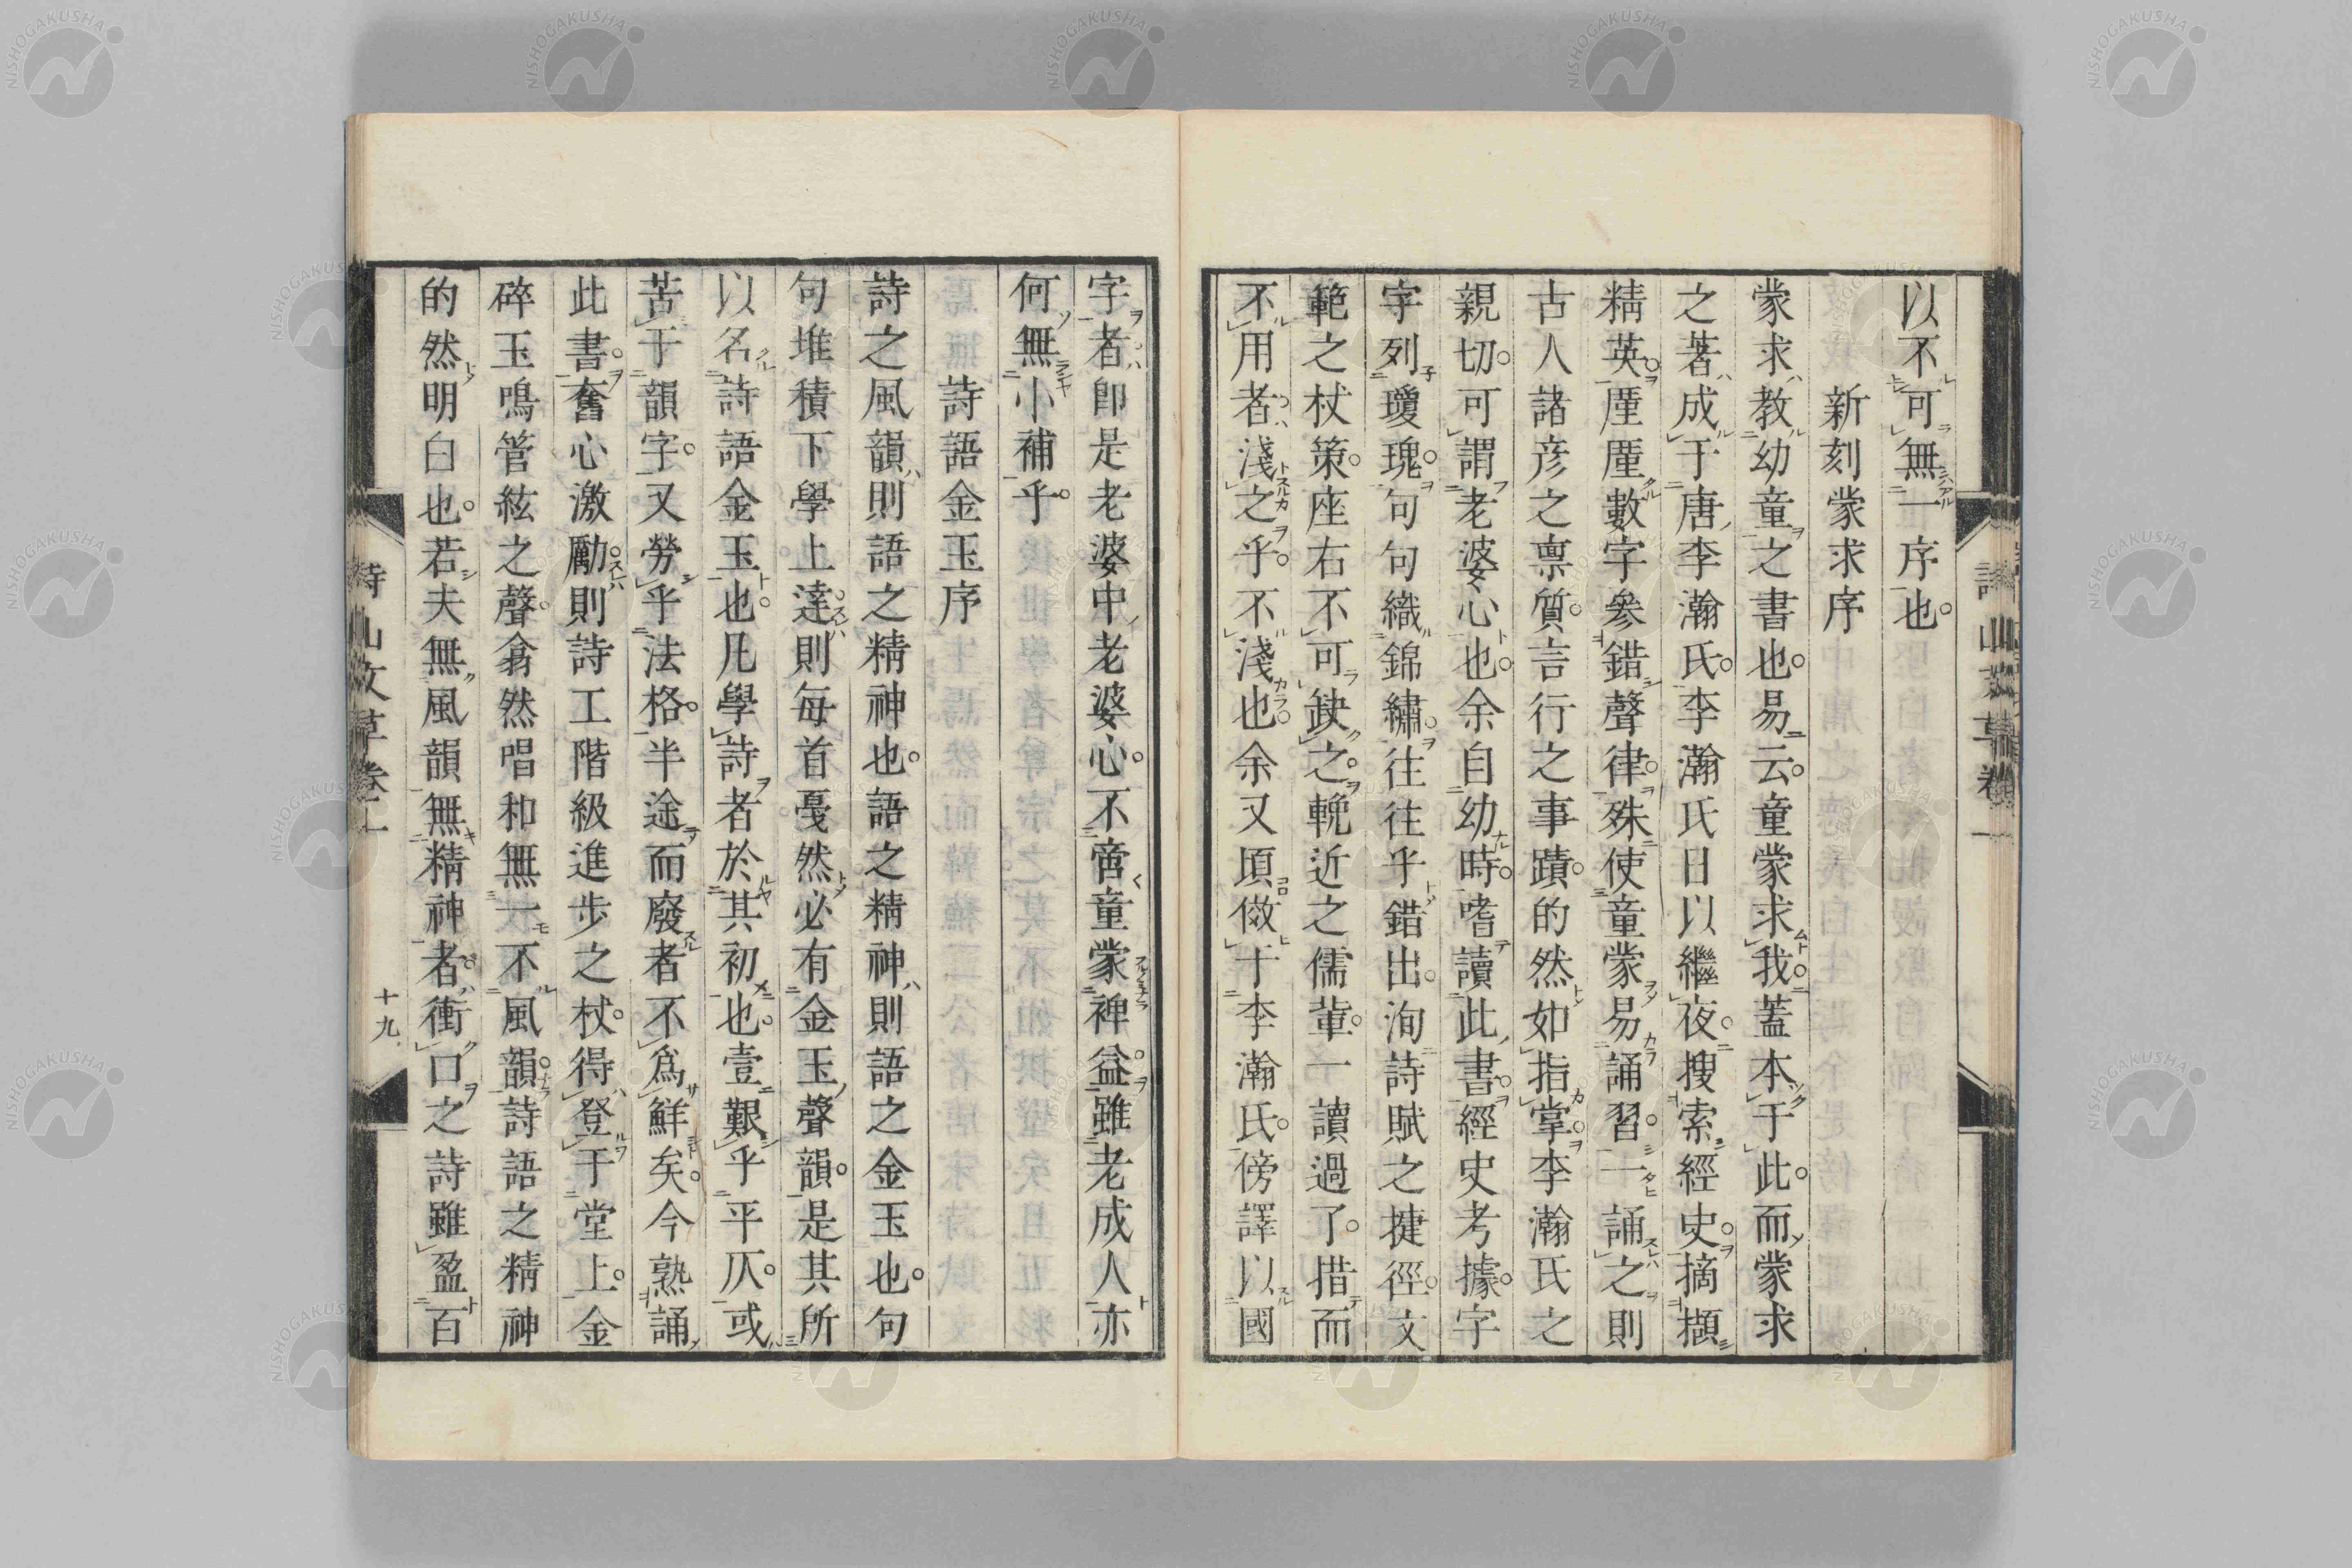 以不可無一序也。
新刻蒙求序
蒙求教幼童之書也。易云。童蒙求我。蓋本于此。而蒙求
之著成于唐李瀚氏。李瀚氏日以繼夜。搜索經史。摘擷
精英。厘厘數字參錯聲律。殊使童蒙易誦習。一誦之則
古人諸彦之禀質。言行之事蹟。的然如指掌。李瀚氏之
親切。可謂老婆心也。余自幼時。嗜讀此書。經史考據。字
字列瓊瑰。句句織錦繡。往往乎錯出。洵詩賦之揵徑。文
範之杖策。座右不可缺之。輓近之儒輩。一讀過了。措而
不用者。淺之乎。不淺也。余又頃傚于李瀚氏。傍譯以國
字者即是老婆中老婆心。不啻童蒙裨益。雖老成人亦
何無小補乎。
詩語金玉序
詩之風韻則語之精神也。語之精神則語之金玉也。句
句堆積下學上達。則毎首戞然必有金玉聲韻。是其所
以名詩語金玉也。凡學詩者於其初也。壹艱乎平仄。或
苦于韻字。又勞乎法格。半途而廢者不爲鮮矣。今熟誦
此書。奮心激勵。則詩工階級進步之杖。得登于堂上。金
碎玉鳴管絃之聲。翕然唱和無一不風韻。詩語之精神
的然明白也。若夫無風韻無精神者。衝口之詩雖盈百
詩山文草卷一
十九
NISHOGAKUSHA